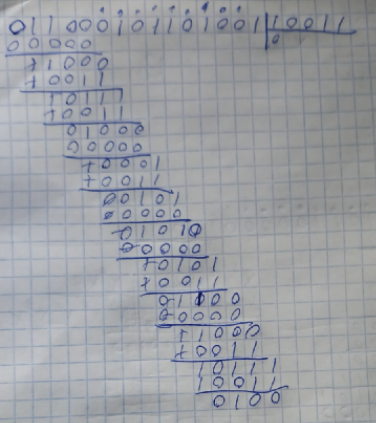 011000101101001 10011
00000 0
11000
10011
10111
10011
01000
00000
10001
10011
00101
00000
01010
00000
10101
10011
01100
00000
11000
10011
10111
10011
0100